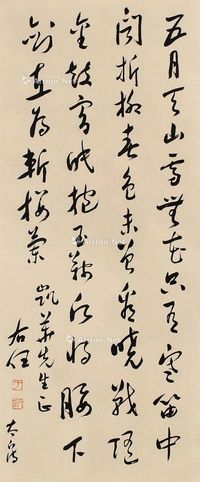 五月天山雪無花只有寒笛中
聞折柳春色未曾看曉戰隨
金鼓宵眠抱玉鞍願將腰下
劍直為斬樓蘭
先生正
右任
Artron.Net